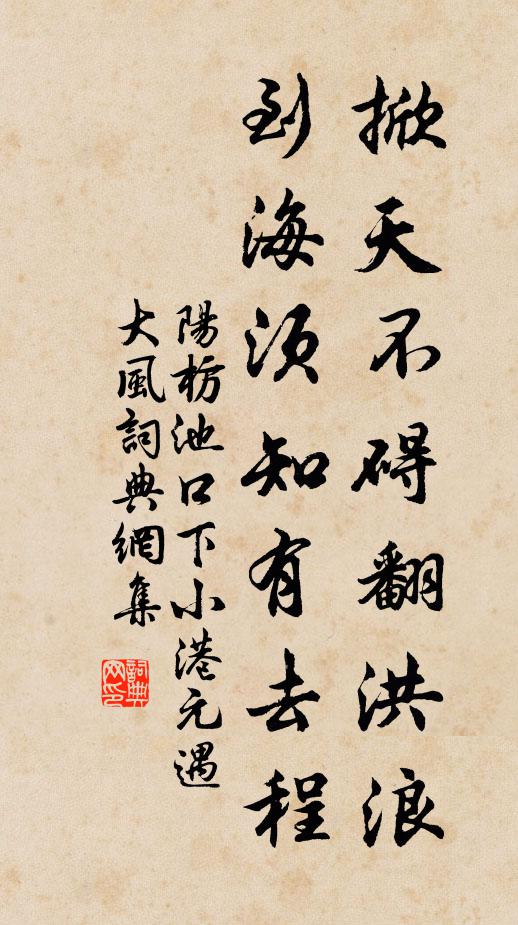 掀天不碍翻洪浪
到海须知有去程
陽枋池口下小港元遇
大風詞典網集
詞典
网印